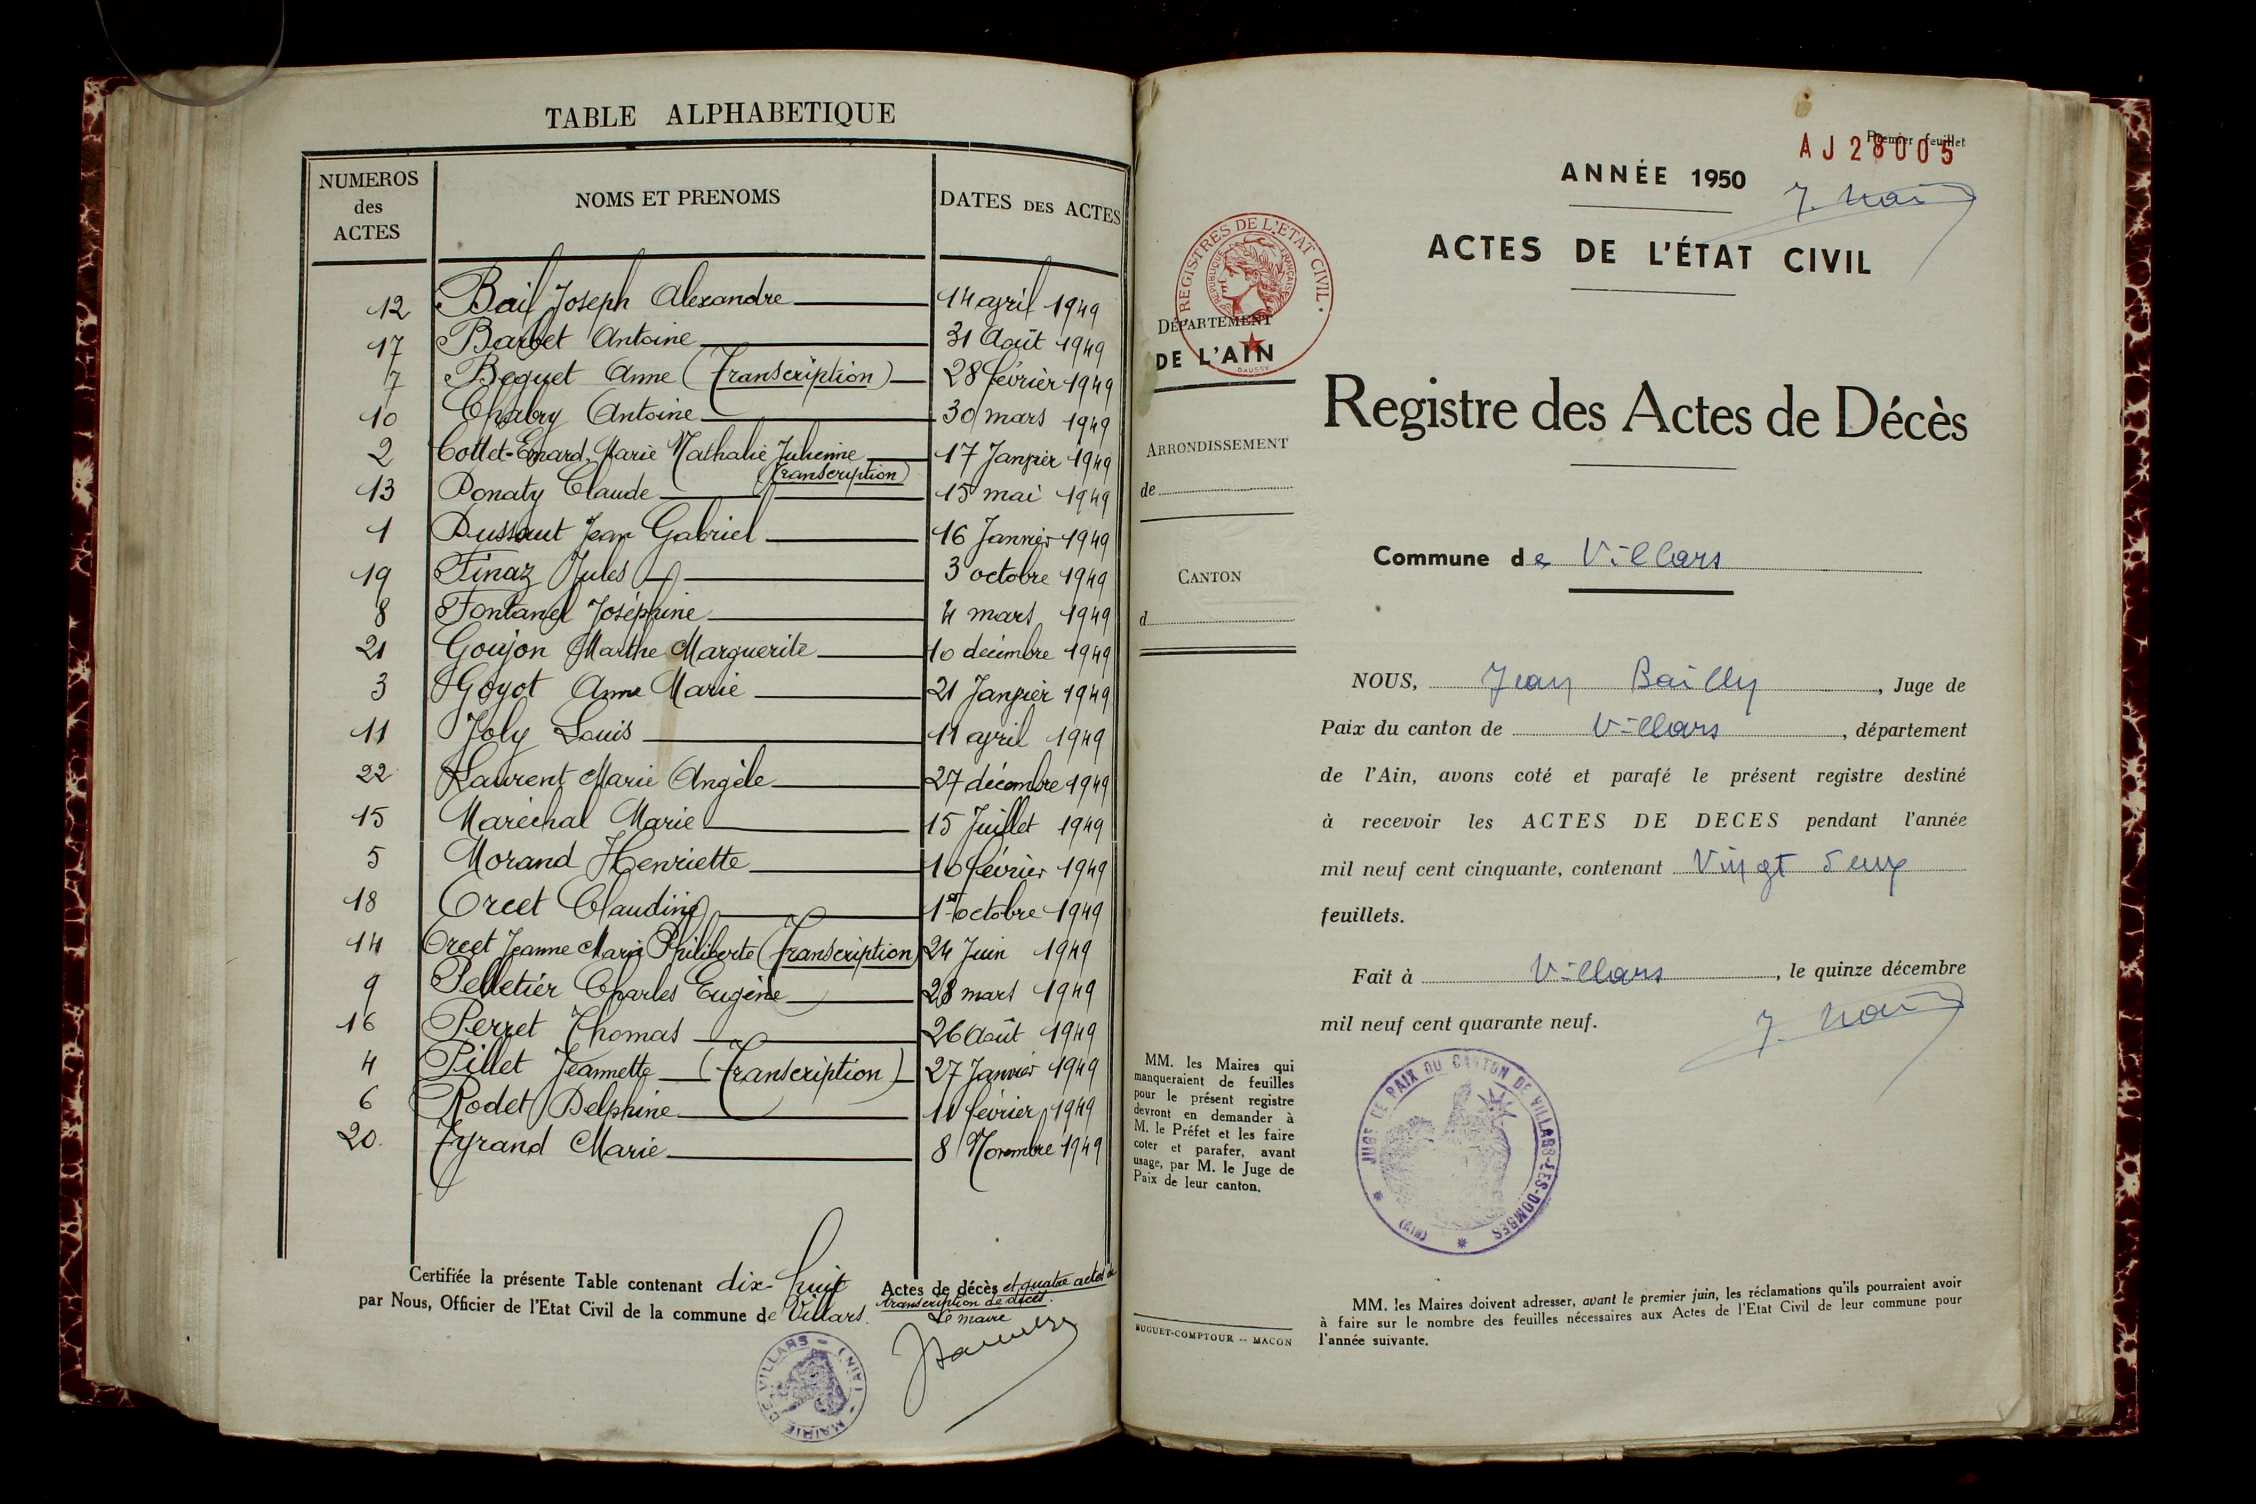 TABLE ALPHABETIQUE
NUMEROS des ACTES
NOMS ET PRENOMS
DATES DES ACTES
12 Bail Joseph Alexandre 14 avril 1949
17 Barbet Antoine 31 Août 1949
7 Beguet Anne (Transcription) 28 février 1949
10 Chabry Antoine 30 mars 1949
2 Cottet-Emard Marie Nathalie Julienne 17 Janvier 1949
(Transcription)
13 Donaty Claude 15 mai 1949
1 Dussaut Jean Gabriel 16 Janvier 1949
19 Finaz Jules 3 octobre 1949
8 Fontanel Joséphine 4 mars 1949
21 Goujon Marthe Marguerite 10 décembre 1949
3 Goyot Anne Marie 21 Janvier 1949
11 Joly Louis 11 avril 1949
22 Laurent Marie Angèle 27 décembre 1949
15 Maréchal Marie 15 Juillet 1949
5 Morand Henriette 10 février 1949
18 Orcet Claudine 1er octobre 1949
14 Orcet Jeanne Marie Philiberte (Transcription) 24 Juin 1949
9 Pelletier Charles Eugène 28 mars 1949
16 Perret Thomas 26 Août 1949
4 Pillet Jeannette (Transcription) 27 Janvier 1949
6 Rodet Delphine 11 février 1949
20. Tyrand Marie 8 Novembre 1949
Certifiée la présente Table contenant dix-huit Actes de décès et quatre actes de
transcription de décès.
par Nous, Officier de l'Etat Civil de la commune de Villars.
Le maire
MAIRIE DE VILLARS - (AIN)
Premier feuillet
AJ 28005
ANNÉE 1950
ACTES DE L'ÉTAT CIVIL
REGISTRES DE L'ÉTAT CIVIL
REPUBLIQUE FRANÇAISE
DAUSSY
DÉPARTEMENT
DE L'AIN
Registre des Actes de Décès
ARRONDISSEMENT
de
CANTON
d
Commune de Villars
NOUS, Jean Bailly, Juge de
Paix du canton de Villars, département
de l'Ain, avons coté et parafé le présent registre destiné
à recevoir les ACTES DE DECES pendant l'année
mil neuf cent cinquante, contenant Vingt deux
feuillets.
Fait à Villars, le quinze décembre
mil neuf cent quarante neuf.
MM. les Maires qui
manqueraient de feuilles
pour le présent registre
devront en demander à
M. le Préfet et les faire
coter et parafer, avant
usage, par M. le Juge de
Paix de leur canton.
JUGE DE PAIX DU CANTON DE VILLARS-LES-DOMBES (AIN)
MM. les Maires doivent adresser, avant le premier juin, les réclamations qu'ils pourraient avoir
à faire sur le nombre des feuilles nécessaires aux Actes de l'Etat Civil de leur commune pour
l'année suivante.
BUGUET-COMPTOUR -- MACON